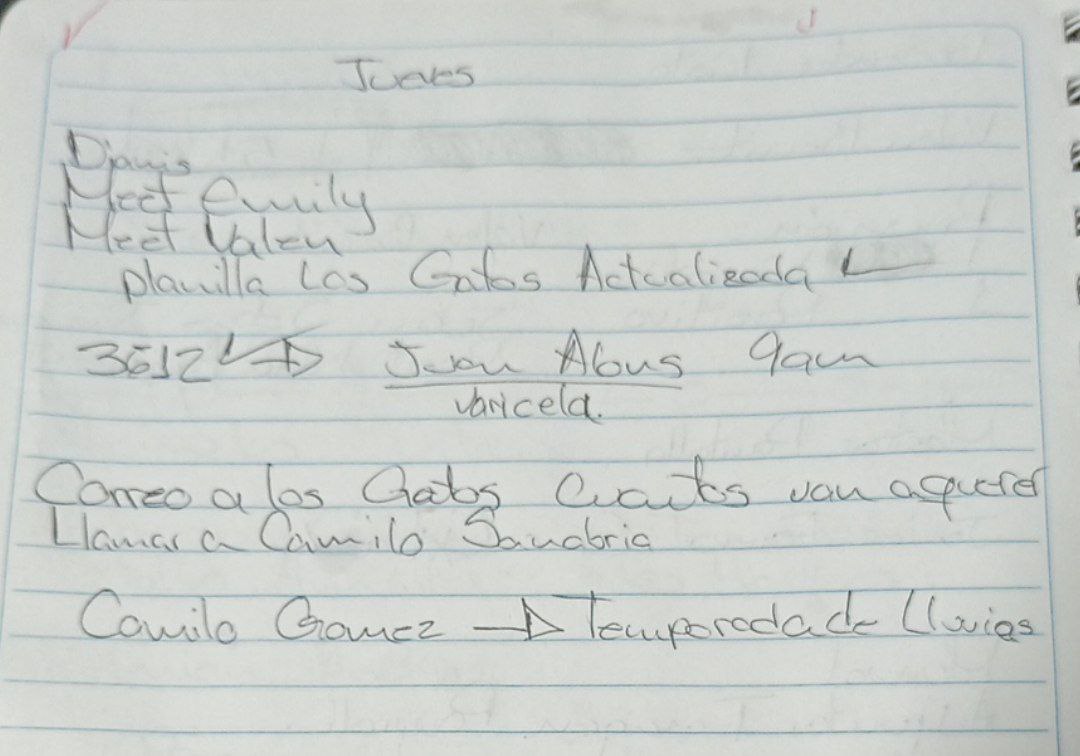 Jueves
Djanis
Meet Emily
Meet Valen
planilla Los Gatos Actualizada
3612 → Juan Abus 9am
varicela.
Correo a los Gatos Cuantos van a querer
Llamar a Camilo Sanabria
Camilo Gomez → Temporada de Lluvias